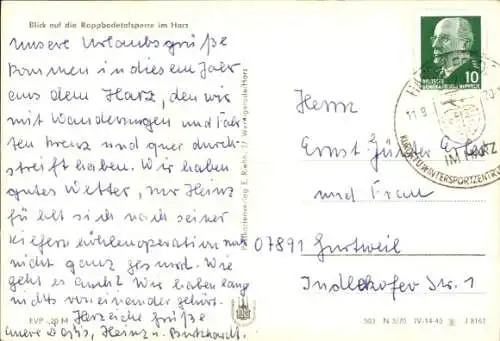 Blick auf die Rappbodetalsperre im Harz
Unsere Urlaubsgrüße
kommen in diesem Jahr
aus dem Harz, den wir
mit Wanderungen und Fahr-
ten kreuz und quer durch-
streift haben. Wir haben
gutes Wetter, nur Heinz
fühlt sich nach seiner
Kieferhöhlenoperation noch
nicht ganz gesund. Wie
geht es euch? Wir haben lang
nichts voneinander gehört.
Herzliche Grüße
Eure Doris, Heinz u. Burkhardt.
EVP -,20 M
Postkartenverlag E. Riehn, 37 Wernigerode/Harz
10
DEUTSCHE
DEMOKRATISCHE REPUBLIK
11.9
IM HARZ
KURORT U. WINTERSPORTZENTRUM
Herrn
Ernst Günter
und Frau
07891 Gurtweil
Indlekofer Str. 1
503 N 3/70 IV-14-45 J 8161